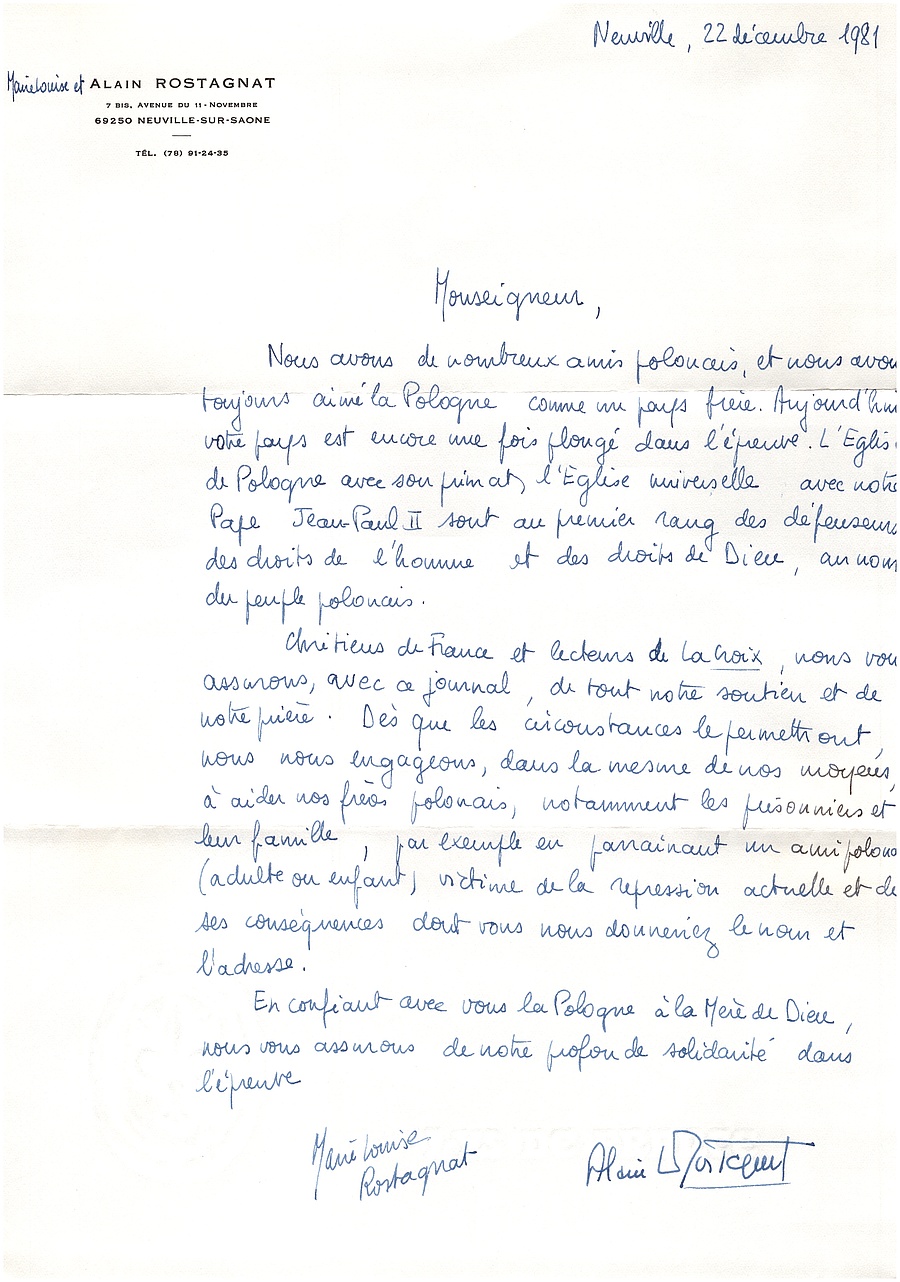 Neuville, 22 décembre 1981
Marie Louise et ALAIN ROSTAGNAT
7 BIS, AVENUE DU 11-NOVEMBRE
69250 NEUVILLE-SUR-SAONE
TÉL. (78) 91-24-35
Monseigneur,
Nous avons de nombreux amis polonais, et nous avon
toujours aimé la Pologne comme un pays frère. Aujourd'hui
votre pays est encore une fois plongé dans l'épreuve. L'Eglis
de Pologne avec son primat, l'Eglise universelle avec notre
Pape Jean-Paul II sont au premier rang des défenseurs
des droits de l'homme et des droits de Dieu, au nom
du peuple polonais.
Chrétiens de France et lecteurs de La Croix, nous vou
assurons, avec ce journal, de tout notre soutien et de
notre prière. Dès que les circonstances le permettront,
nous nous engageons, dans la mesure de nos moyens,
à aider nos frères polonais, notamment les prisonniers et
leur famille, par exemple en parrainant un ami polona
(adulte ou enfant) victime de la repression actuelle et de
ses conséquences dont vous nous donneriez le nom et
l'adresse.
En confiant avec vous la Pologne à la Mère de Dieu,
nous vous assurons de notre profonde solidarité dans
l'épreuve
Marie Louise
Rostagnat
Alain Rostagnat